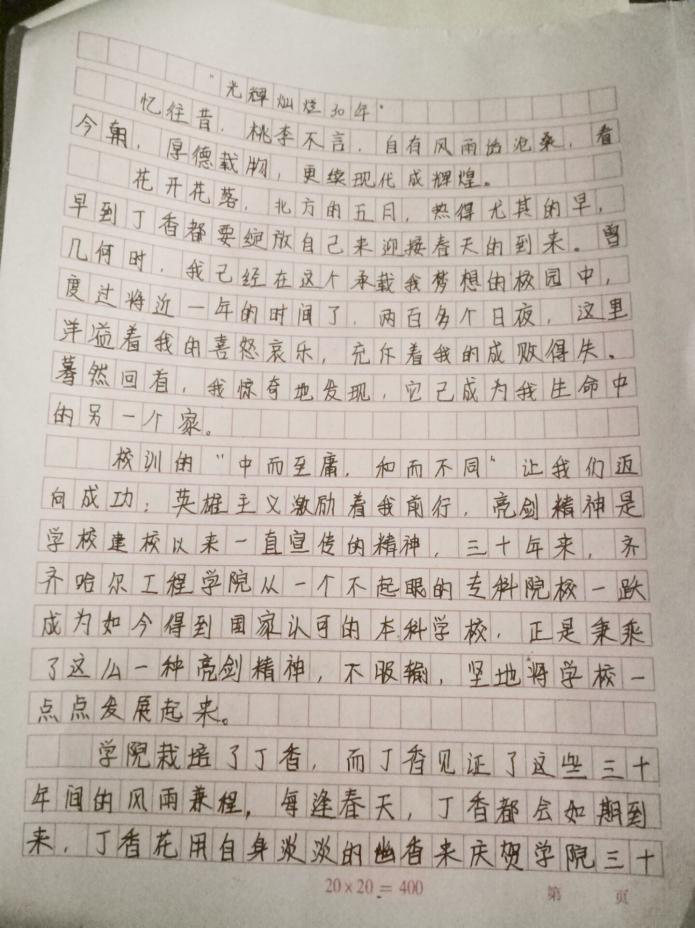 “光辉灿烂30年”
忆往昔，桃李不言，自有风雨话沧桑，看
今朝，厚德载物，更续现代成辉煌。
花开花落，北方的五月，热得尤其的早，
早到丁香都要绽放自己来迎接春天的到来。曾
几何时，我已经在这个承载我梦想的校园中，
度过将近一年的时间了，两百多个日夜，这里
洋溢着我的喜怒哀乐，充斥着我的成败得失。
蓦然回首，我惊奇地发现，它已成为我生命中
的另一个家。
校训的“中而至庸，和而不同”让我们迈
向成功；英雄主义激励着我前行，亮剑精神是
学校建校以来一直宣传的精神，三十年来，齐
齐哈尔工程学院从一个不起眼的专科院校一跃
成为如今得到国家认可的本科学校，正是秉乘
了这么一种亮剑精神，不服输，坚地将学校一
点点发展起来。
学院栽培了丁香，而丁香见证了这些三十
年间的风雨兼程，每逢春天，丁香都会如期到
来，丁香花用自身淡淡的幽香来庆贺学院三十
20×20=400 第 页